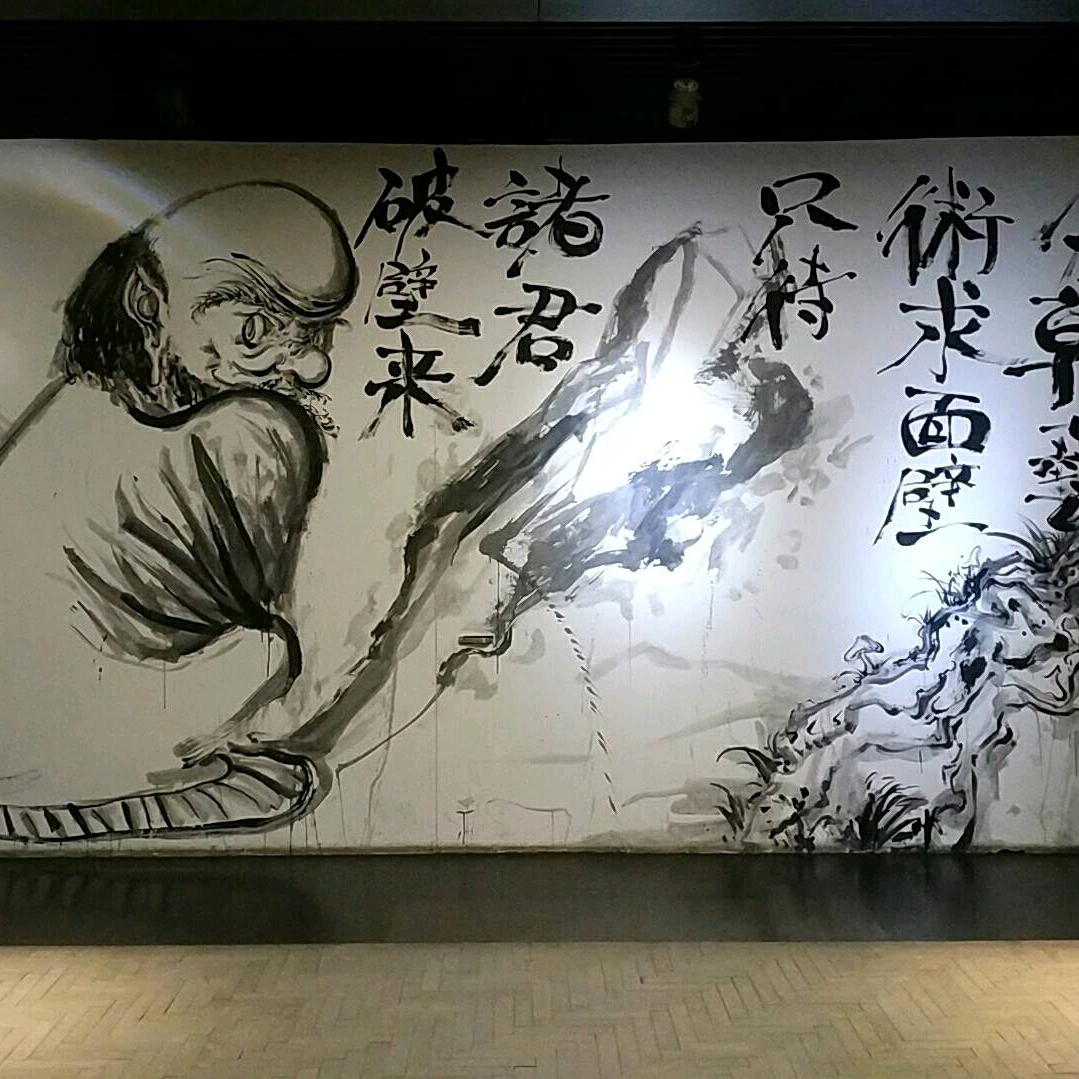 藝
術求面壁
只待
諸君
破壁来